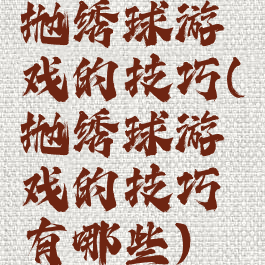 抛绣球游
戏的技巧(
抛绣球游
戏的技巧
有哪些)